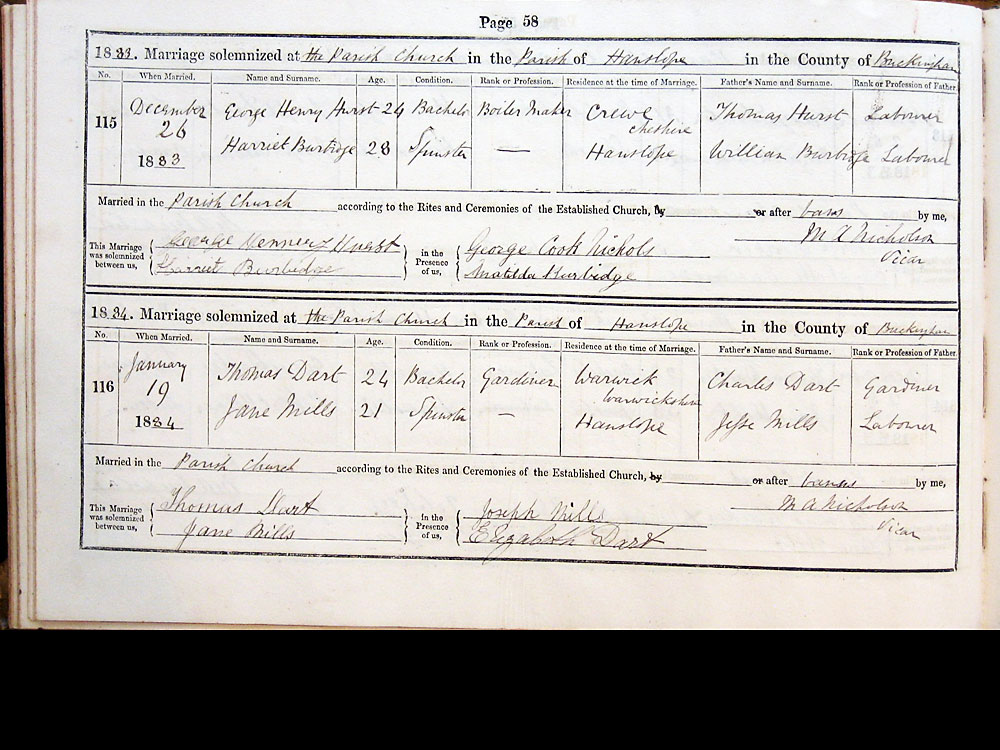 Page 58
1883. Marriage solemnized at the Parish Church in the Parish of Hanslope in the County of Buckingham
No. When Married. Name and Surname. Age. Condition. Rank or Profession. Residence at the time of Marriage. Father's Name and Surname. Rank or Profession of Father.
115 December 26 1883 George Henry Hurst 24 Bachelor Boiler Maker Crewe Cheshire Thomas Hurst Labourer
Harriet Burbidge 28 Spinster — Hanslope William Burbidge Labourer
Married in the Parish Church according to the Rites and Ceremonies of the Established Church, by or after banns by me,
This Marriage was solemnized between us, George Hennery Hurst in the Presence of us, George Cook Nichols M A Nicholson
Harriet Burbidge Matilda Burbidge Vicar
1884. Marriage solemnized at the Parish Church in the Parish of Hanslope in the County of Buckingham
No. When Married. Name and Surname. Age. Condition. Rank or Profession. Residence at the time of Marriage. Father's Name and Surname. Rank or Profession of Father.
116 January 19 1884 Thomas Dart 24 Bachelor Gardiner Warwick Warwickshire Charles Dart Gardiner
Jane Mills 21 Spinster — Hanslope Jesse Mills Labourer
Married in the Parish Church according to the Rites and Ceremonies of the Established Church, by or after banns by me,
This Marriage was solemnized between us, Thomas Dart in the Presence of us, Joseph Mills M A Nicholson
Jane Mills Elizabeth Dart Vicar